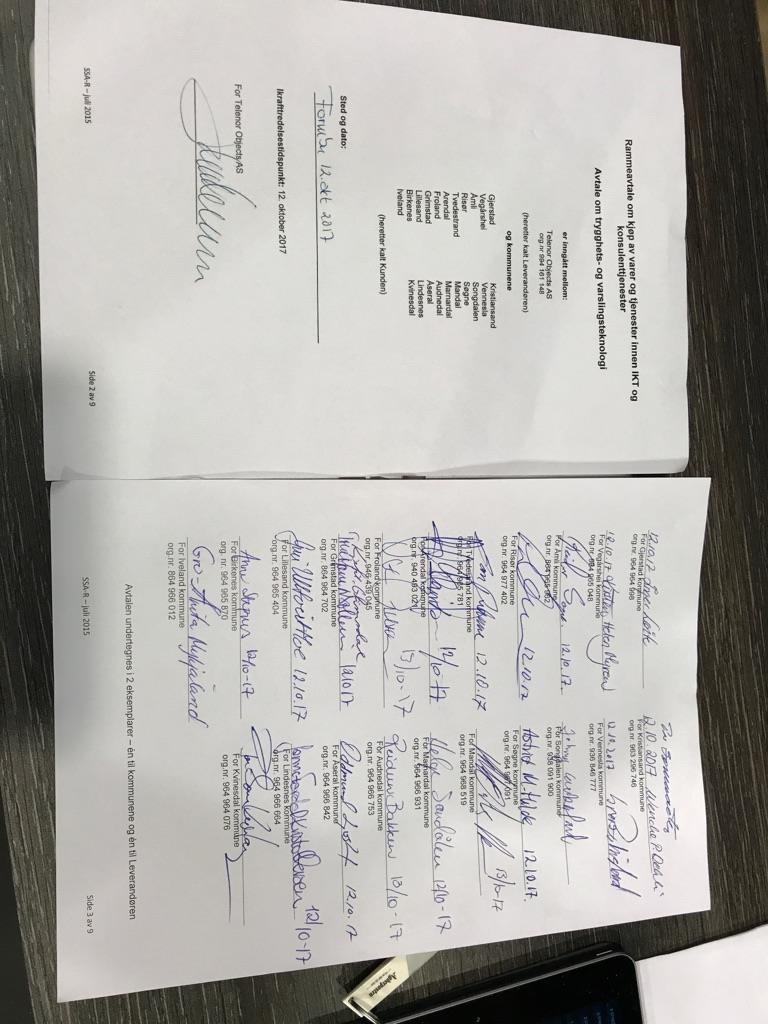 Rammeavtale om kjøp av varer og tjenester innen IKT og
konsulenttjenester
Avtale om trygghets- og varslingsteknologi
er inngått mellom:
Telenor Objects AS
org.nr 994 161 148
(heretter kalt Leverandøren)
og kommunene
Gjerstad Kristiansand
Vegårshei Vennesla
Åmli Songdalen
Risør Søgne
Tvedestrand Mandal
Arendal Marnardal
Froland Audnedal
Grimstad Åseral
Lillesand Lindesnes
Birkenes Kvinesdal
Iveland
(heretter kalt Kunden)
Sted og dato:
Fornebu 12. okt 2017
Ikrafttredelsestidspunkt: 12. oktober 2017
For Telenor Objects AS
SSA-R – juli 2015 Side 2 av 9
12.10.17
For Gjerstad kommune
org.nr. 964 964 998
12.10.2017 Wenche P. Dehli
For Kristiansand kommune
org.nr. 963 296 746
12.10.17 Helen Myren
For Vegårshei kommune
org.nr. 964 965 048
12.10.2017
For Vennesla kommune
org.nr. 936 846 777
12.10.17.
For Åmli kommune
org.nr. 864 965 962
For Songdalen kommune
org.nr. 938 091 900
12.10.17
For Risør kommune
org.nr. 964 977 402
Astrid M. Hilde 12.10.17.
For Søgne kommune
org.nr. 964 967 091
12.10.17
For Tvedestrand kommune
org.nr. 964 965 781
13/10-17
For Mandal kommune
org.nr. 964 968 519
12/10-17
For Arendal kommune
org.nr. 940 493 021
Helge Sandåker 12/10-17
For Marnardal kommune
org.nr. 964 966 931
13/10-17
For Froland kommune
org.nr. 946 439 045
Reidun Bakken 12/10-17
For Audnedal kommune
org.nr. 964 966 753
12/10 17
For Grimstad kommune
org.nr. 864 964 702
12.10.17
For Åseral kommune
org.nr. 964 966 842
12.10.17
For Lillesand kommune
org.nr. 964 965 404
12/10-17
For Lindesnes kommune
org.nr. 964 966 664
Anne 12/10-17
For Birkenes kommune
org.nr. 964 965 870
For Kvinesdal kommune
org.nr. 964 964 076
Gro-Anita Mykjåland
For Iveland kommune
org.nr. 864 966 012
Avtalen undertegnes i 2 eksemplarer – én til kommunene og én til Leverandøren
SSA-R – juli 2015 Side 3 av 9